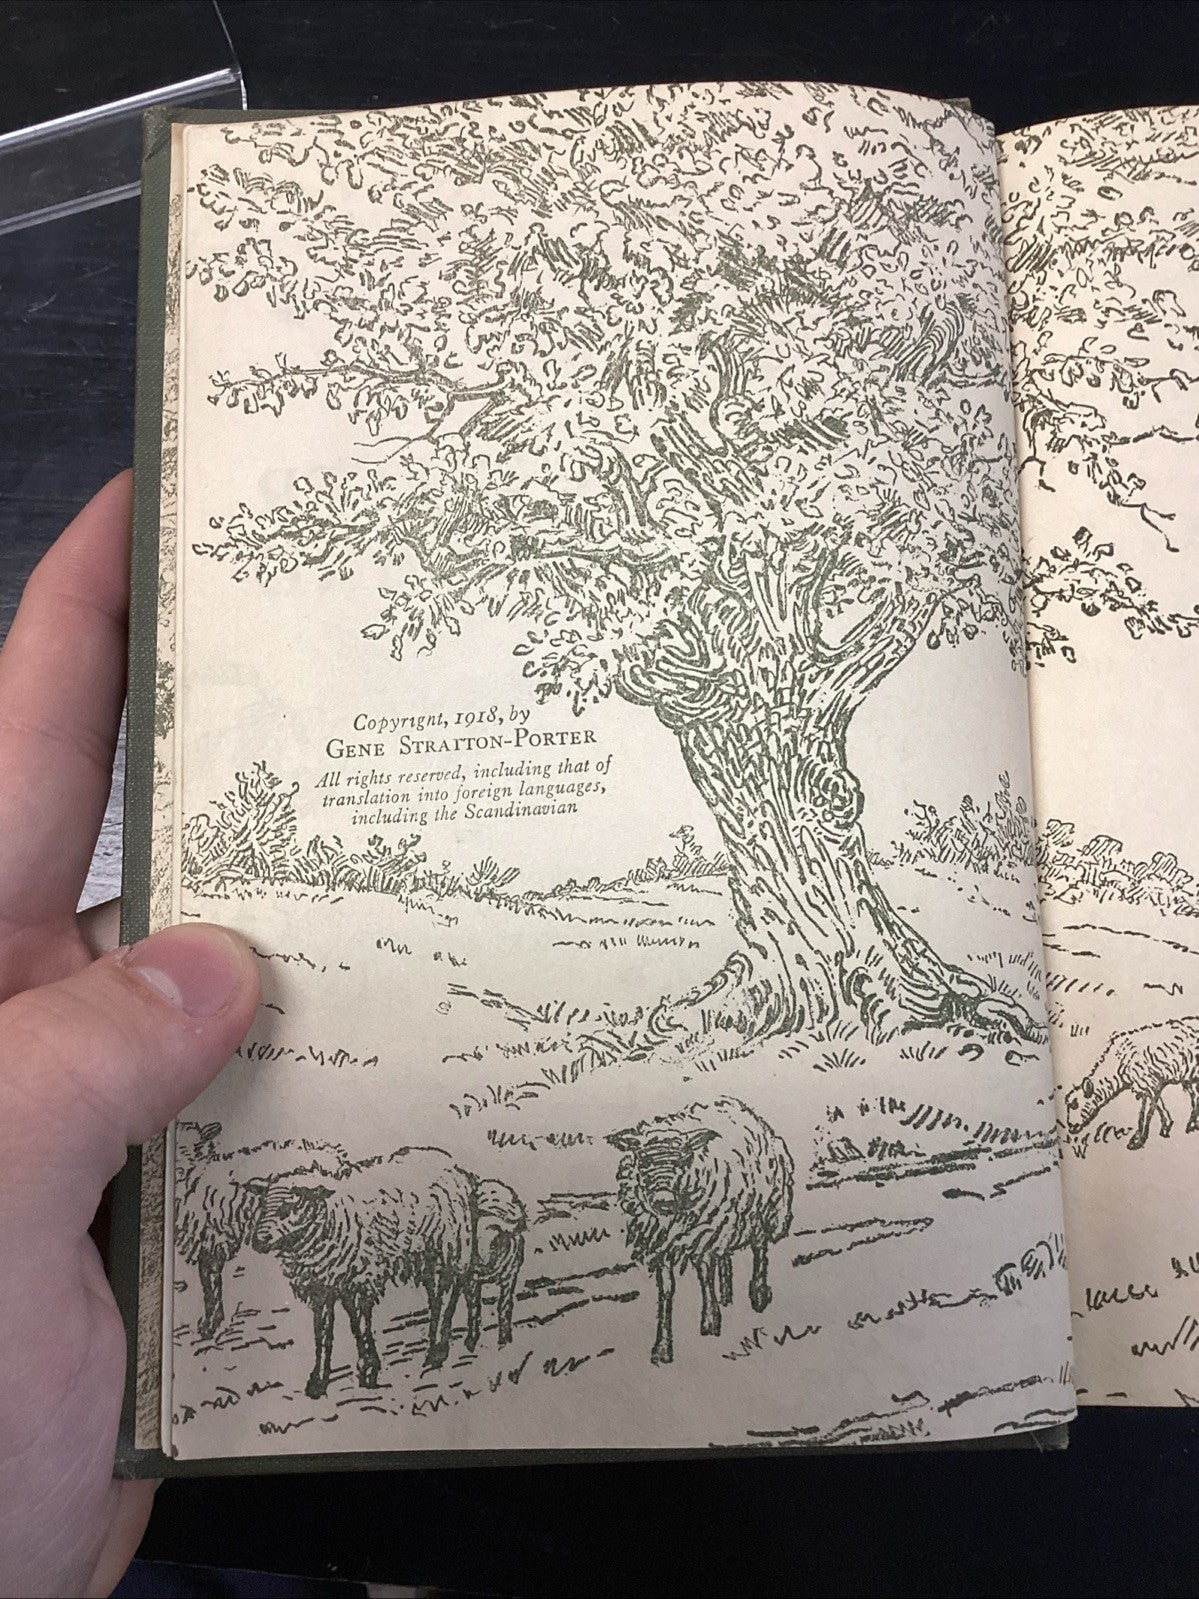 Copyright, 1918, by
GENE STRATTON-PORTER
All rights reserved, including that of
translation into foreign languages,
including the Scandinavian